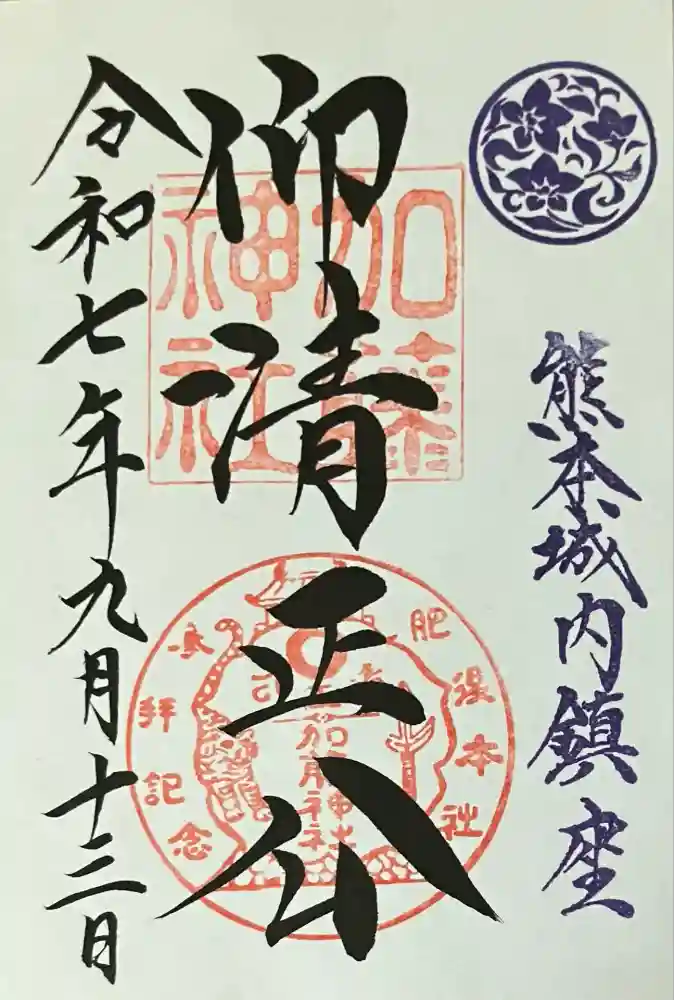 熊本城内鎮座
仰清正公
加藤神社
肥後本社
加藤神社
参拝記念
令和七年九月十三日